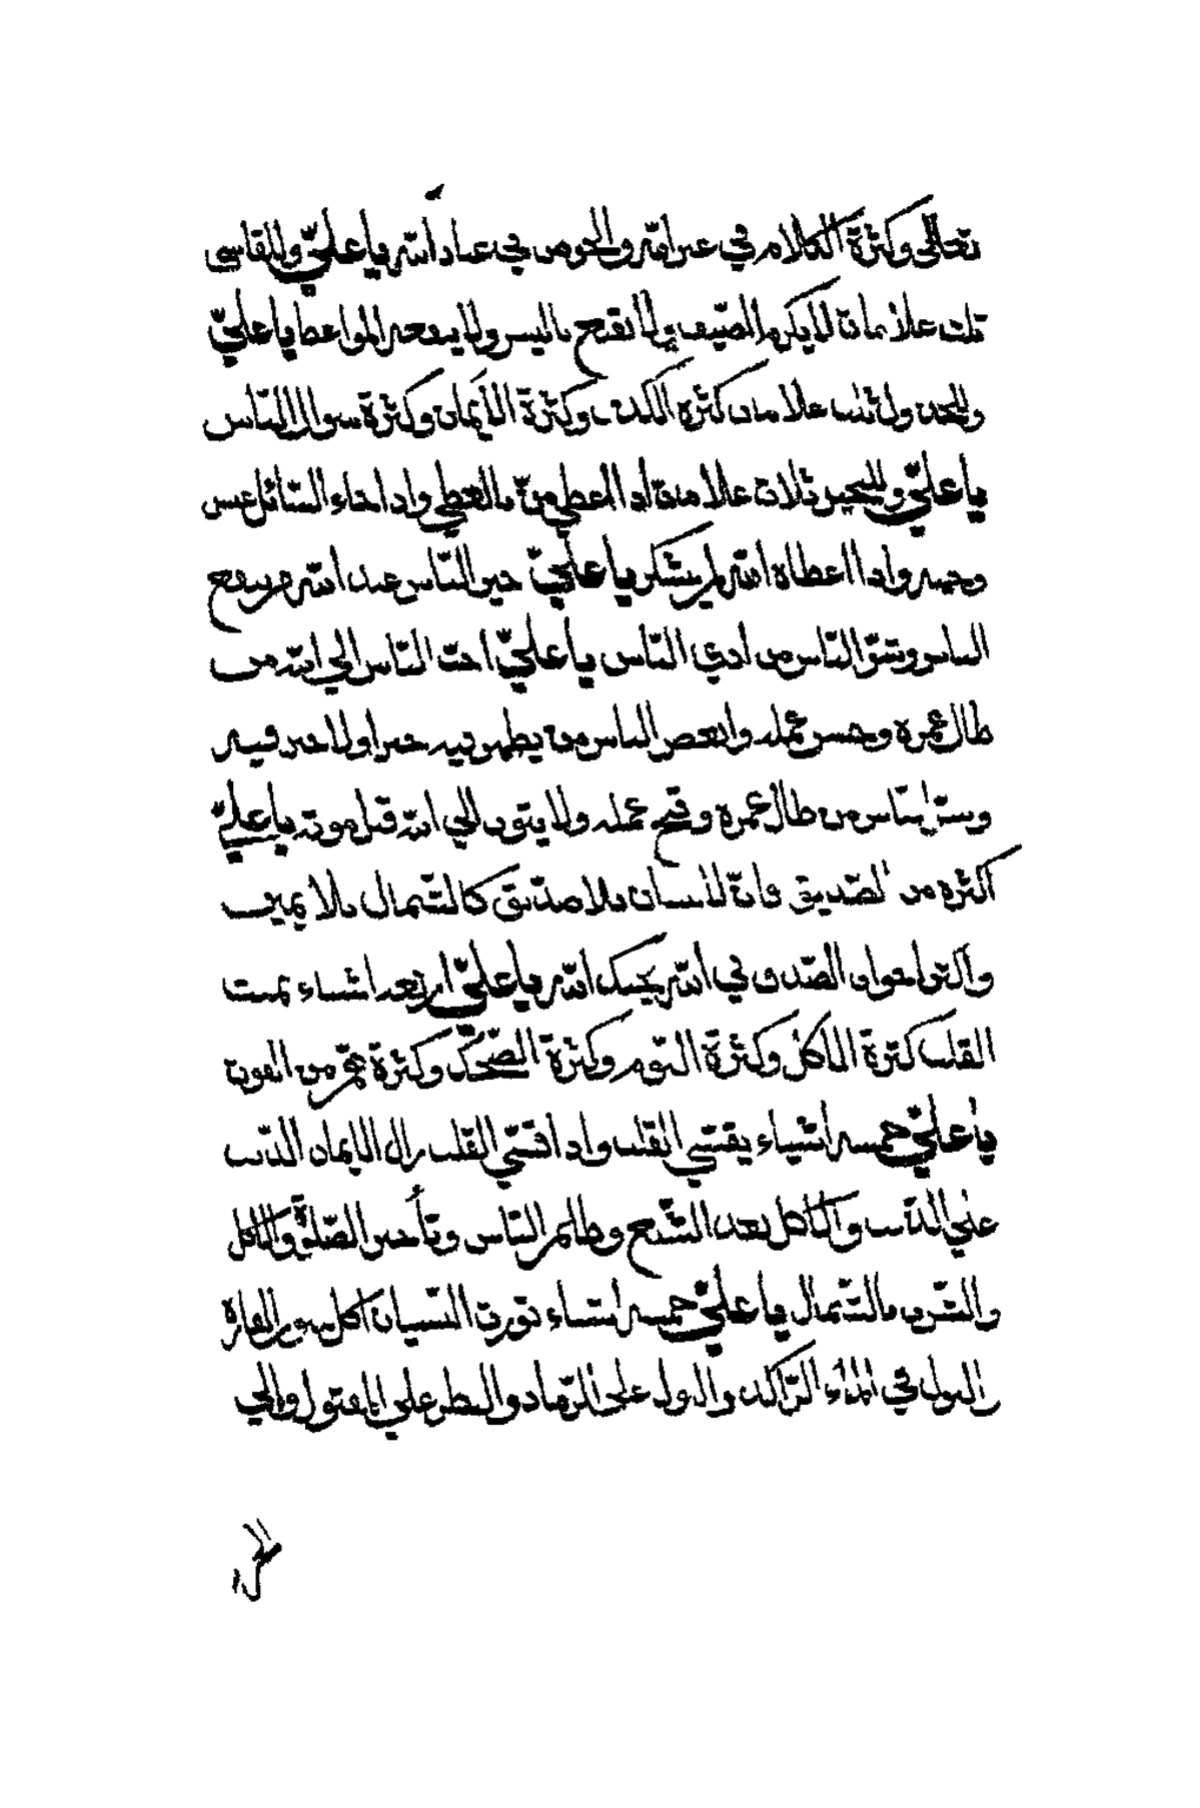 تعالى وكثرة الكلام في غير الله والخوض في عباد الله يا علي وللقاسي
ثلث علامات لا يكرم الضيف ولا يقنع باليسر ولا ينفعه المواعظ يا علي
وكثرة الكذب وكثرة الأيمان وكثرة سوال الناس
يا علي وللبخيل ثلاث علامات اذا اعطي من بالعطي واذا جاء السائل عبس
وجهه واذا اعطاه الله لم يشكر يا علي خير الناس عند الله من ينفع
الناس وشر الناس من اذي الناس يا علي احب الناس الي الله من
طال عمره وحسن عمله وابغض الناس من يظهر فيه خيرا ولا خير فيه
وشر الناس من طال عمره وقبح عمله ولا يتوب الي الله قبل موته يا علي
اكثره من الصديق فان الانسان بلا صديق كالشمال بلا يمين
والتو اخوان الصدق في الله يحبك الله يا علي اربعه اشياء يميت
القلب كثرة الماكل وكثرة النوم وكثرة الضحك وكثرة من القوت
يا علي خمسه اشياء يقسي القلب واذا اقسي القلب زال الايمان الذنب
علي الذنب والاكل بعد الشبع وظلم الناس وتأخير الصلوة والاكل
والشرب بالشمال يا علي خمسه اشياء تورث النسيان اكل سور الفارة
والبول في الماء الراكد والبول علي الرماد والنظر علي المقتول والي